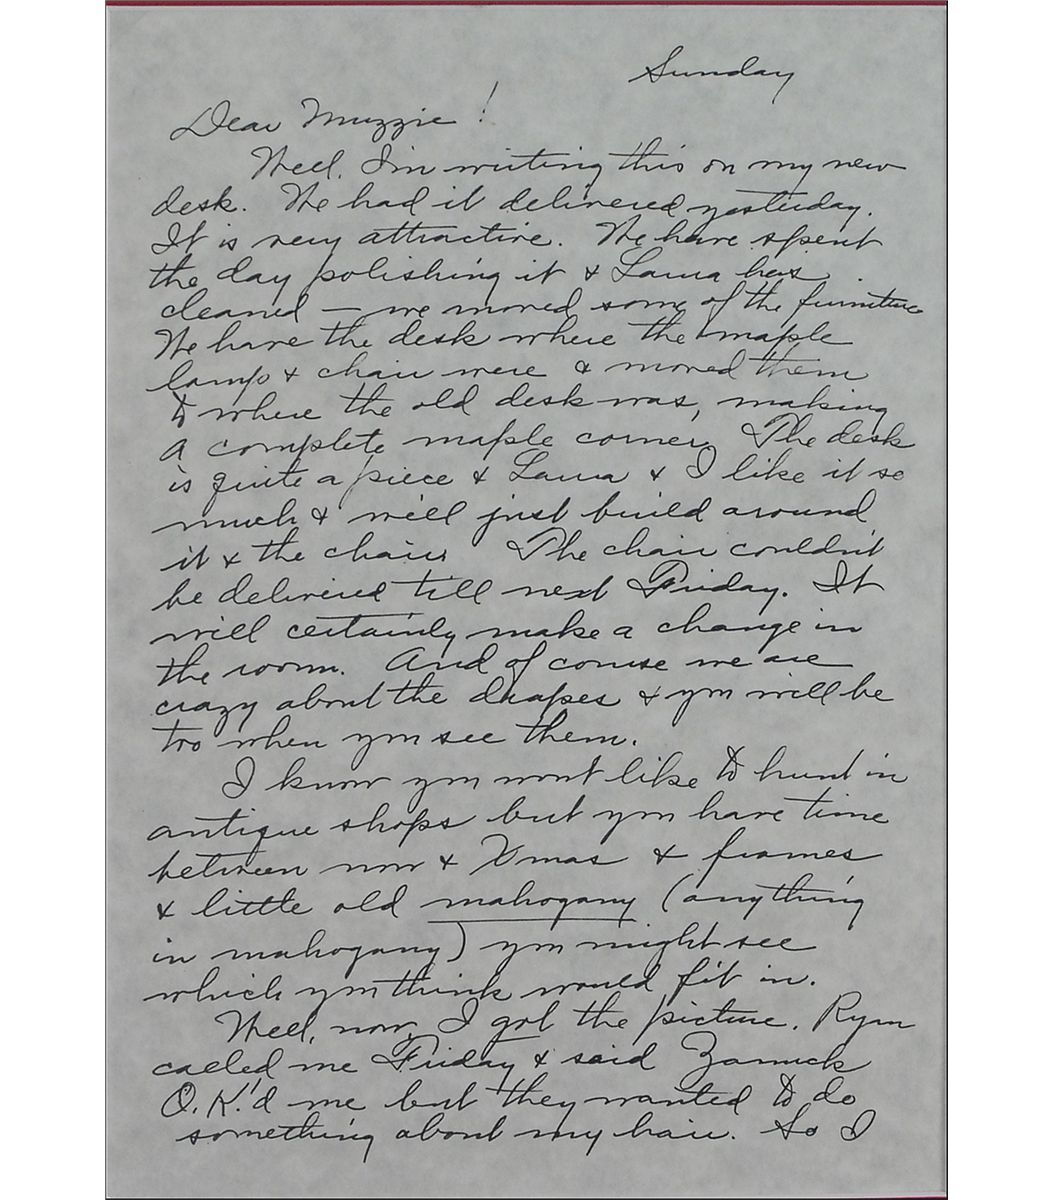 Sunday
Dear Muzzie!
Well, I'm writing this on my new
desk. We had it delivered yesterday.
It is very attractive. We have spent
the day polishing it & Laura has
cleaned — we moved some of the furniture
We have the desk where the maple
lamp & chair were & moved them
to where the old desk was, making
a complete maple corner. The desk
is quite a piece & Laura & I like it so
much & will just build around
it & the chairs The chair couldn't
be delivered till next Friday. It
will certainly make a change in
the room. And of course we are
crazy about the drapes & you will be
too when you see them.
I know you won't like to hunt in
antique shops but you have time
between now & Xmas & frames
& little old mahogany (anything
in mahogany) you might see
which you think would fit in.
Well, now I got the picture. Rym
called me Friday & said Zanuck
O.K.'d me but they wanted to do
something about my hair. So I